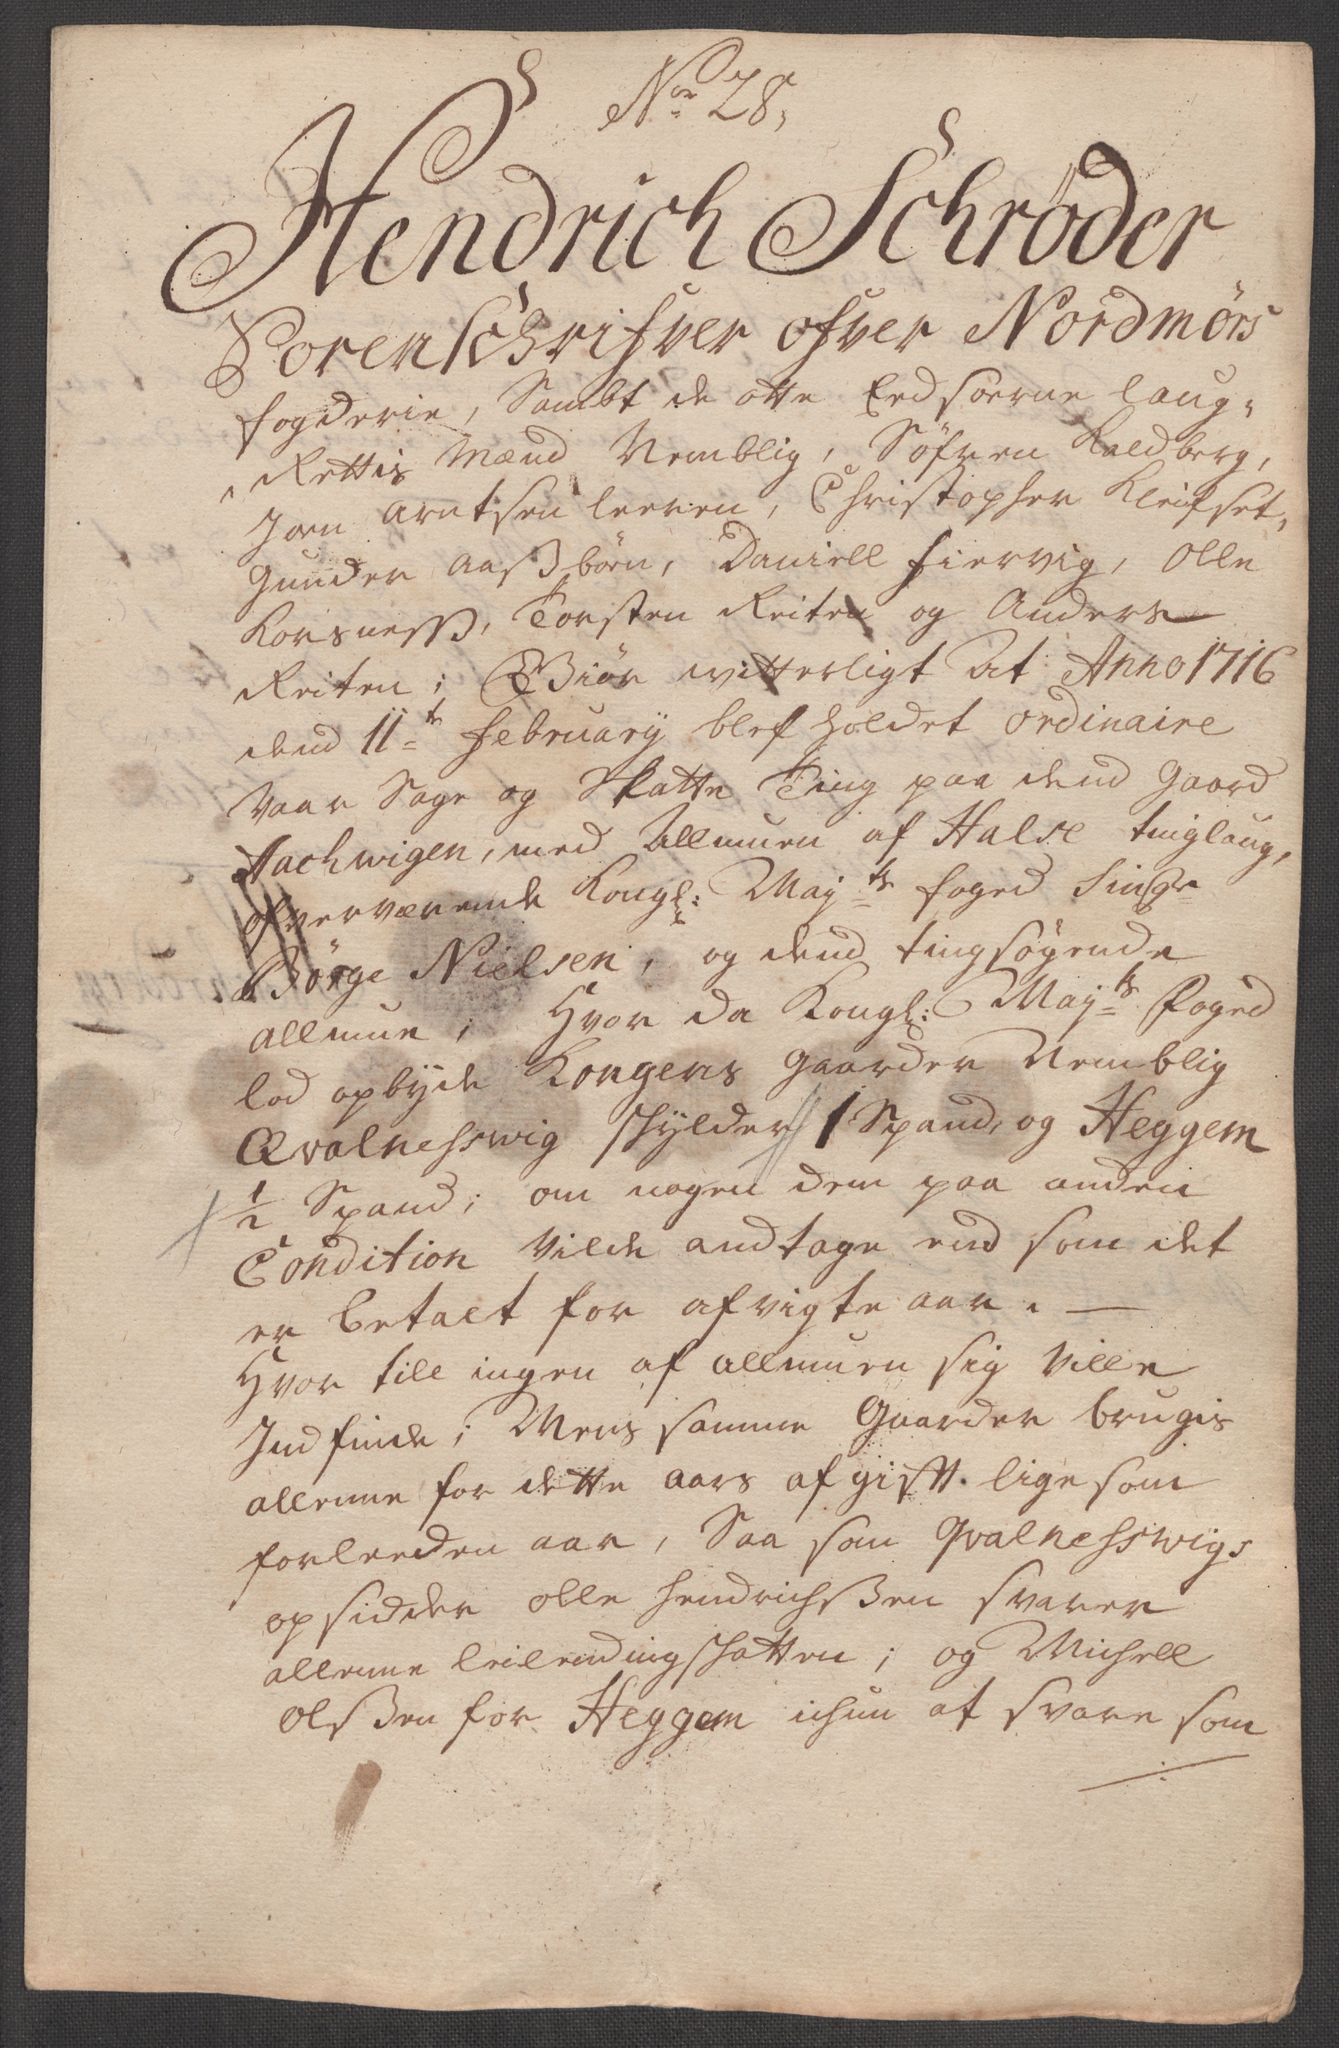 No 28,
Hendrich Schrøder
Sorenschrifver ofver Nordmørs
fogderie, Sambt de otte Eedsoerne laug-
Rettis Mænd Nemblig, Søfren Kaldberg,
Joen Arntsen leeren, Christopher Kleifset,
Gunder Aaßbørn, Daniell fiervig, Olle
Korsneß, Torsten Reiten og Anders
Reiten; Giør witterligt At Anno 1716
dend 11te february blef holdet ordinaire
Vaar Sage og Skatte Ting paa dend Gaard
Aachwigen, med Allmuen af Halse tinglaug,
ofverværende Kongl: Mayts foged Sinr
Børge Nielsen, og dend tingsøgende
allmue; Hvor da Kongl: Mayts Foged
lod opbyde Kongens gaarder Nemblig
Qvalnesswig schylder 1 Spand, og Heggem
1/2 Spand; om nogen dem paa anden
Condition Vilde andtage end som det
er betalt for afvigte aar. —
Hvor till ingen af allmuen sig Ville
Indfinde; Mens samme Gaarder brugis
allenne for dette aars afgift lige som
forleeden aar, Saa som Qvalnesswigs
opsidder olle Hendrichßen svarer
allenne leilendingschatten; og Michell
Olßen for Heggem ichun at svare som